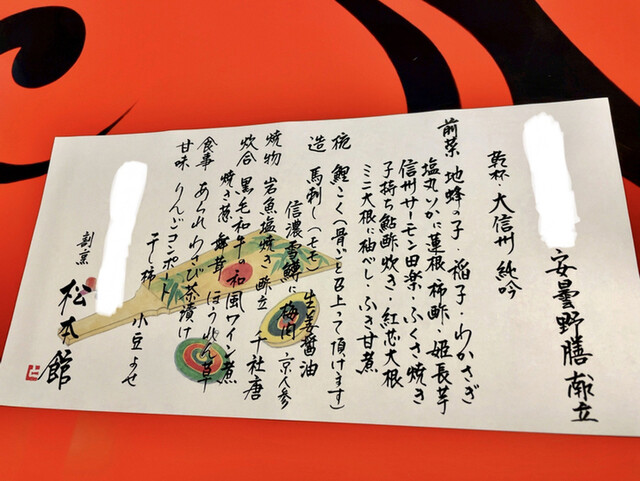 安曇野膳 献立
乾杯・大信州 純吟
前菜 地蜂の子・稲子・わかさぎ
塩丸いかに蓮根柿酢・姫長芋
信州サーモン田楽・ふくさ焼き
子持ち鮎酢炊き・紅芯大根
ミニ大根に柚べし・ふき甘煮
椀 鯉こく(骨ごと召上って頂けます)
造 馬刺し(モモ) 生姜醤油
信濃雪鱒に梅肉 京人参
焼物 岩魚塩焼き 酢立 千社唐
炊合 黒毛和牛の和風ワイン煮
焼き葱 舞茸 ほうれん草
食事 あられわさび茶漬け
甘味 りんごコンポート 小豆よせ
干し柿
割烹 松本館